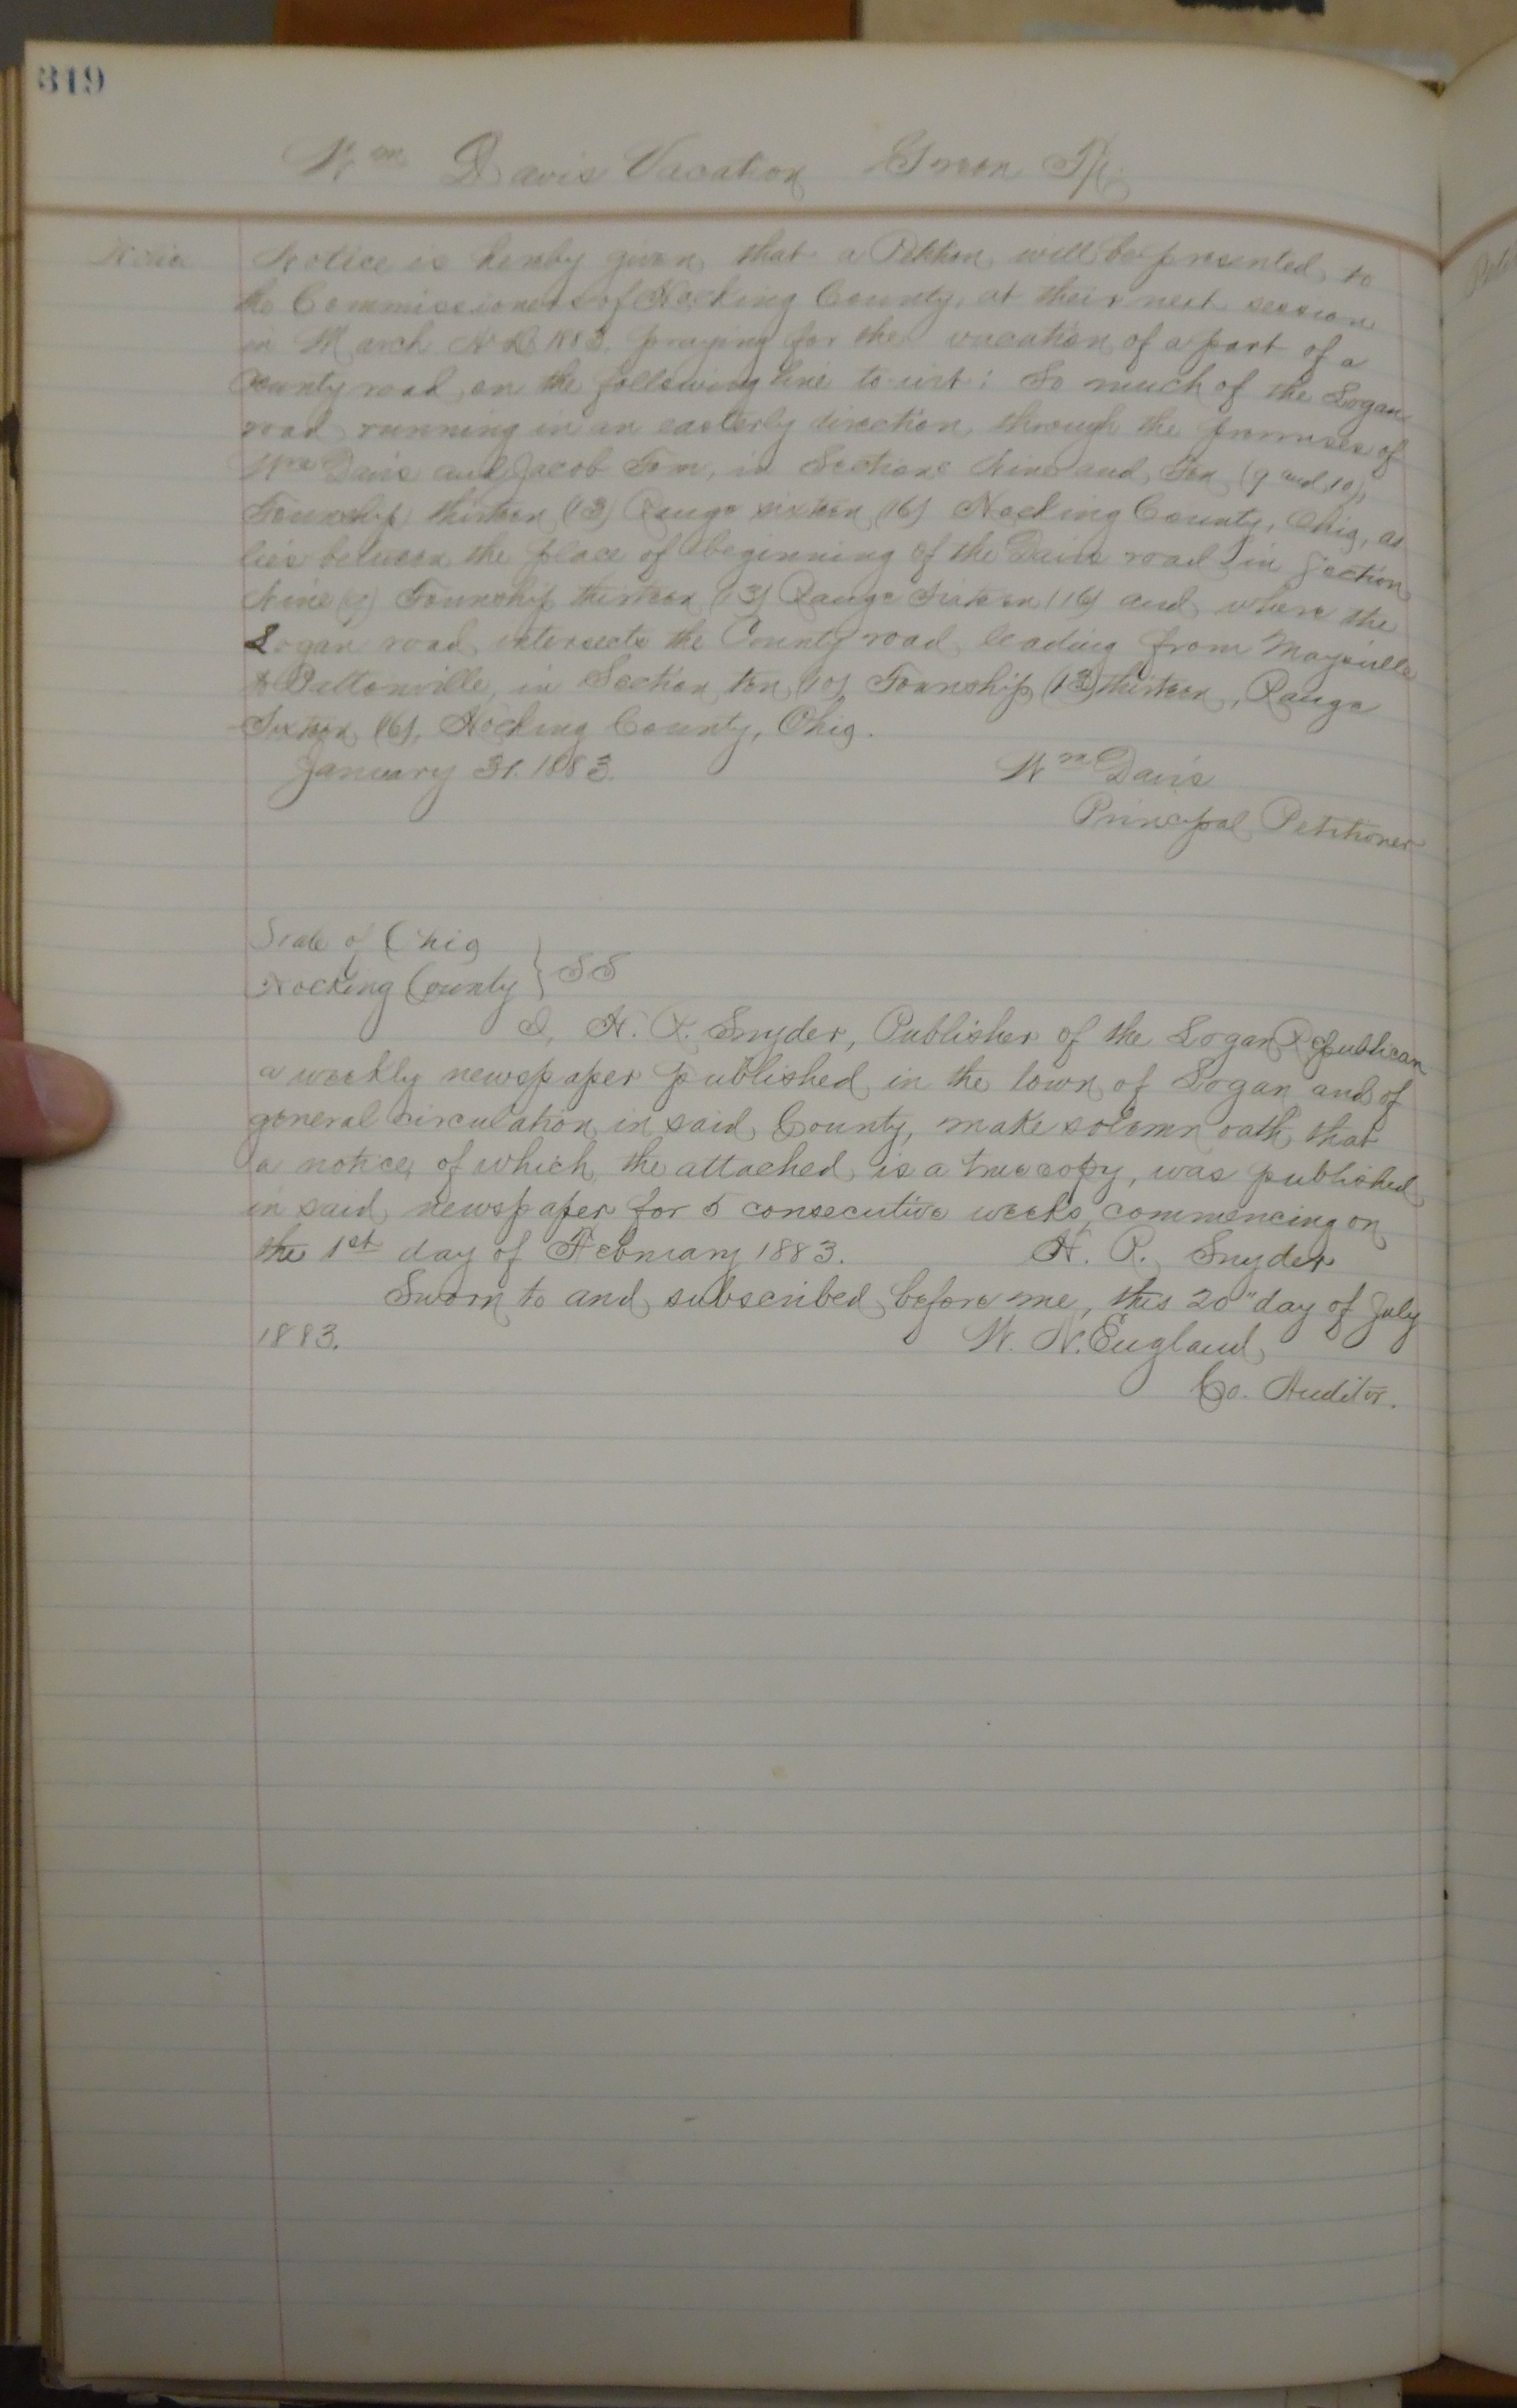 319
Wm Davis Vacation Green Tp.
Notice
Notice is hereby given that a Petition will be presented to
the Commissioners of Hocking County, at their next session
in March A D 1883, praying for the vacation of a part of a
County road on the following line to-wit: So much of the Logan
road running in an easterly direction through the premises of
Wm Davis and Jacob Tom, in Sections Nine and Ten (9 and 10),
Township thirteen (13) Range sixteen (16) Hocking County, Ohio, as
lies between the place of beginning of the Davis road in Section
Nine (9) Township thirteen (13) Range Sixteen (16) and where the
Logan road intersects the County road leading from Maysville
to Pattonville, in Section ten (10) Township (13) thirteen, Range
Sixteen (16), Hocking County, Ohio.
January 31. 1883.
Wm Davis
Principal Petitioner
State of Ohio
Hocking County } SS
I, H. R. Snyder, Publisher of the Logan Republican
a weekly newspaper published in the town of Logan and of
general circulation in said County, make solemn oath that
a notice, of which the attached is a true copy, was published
in said newspaper for 5 consecutive weeks, commencing on
the 1st day of February 1883. H. R. Snyder
Sworn to and subscribed before me, this 20" day of July
1883. W. N. England
Co. Auditor.